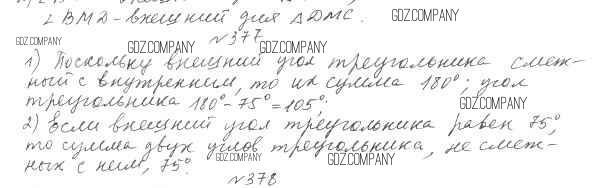 ∠BMD - внешний для ΔDMC.
GDZ.COMPANY
№377
GDZ.COMPANY GDZ.COMPANY GDZ.COMPANY
1) Поскольку внешний угол треугольника смеж-
ный с внутренним, то их сумма 180°; угол
треугольника 180° - 75° = 105°;
GDZ.COMPANY
2) Если внешний угол треугольника равен 75°,
то сумма двух углов треугольника, не смеж-
GDZ.COMPANY GDZ.COMPANY
ных с ним, 75°.
№378